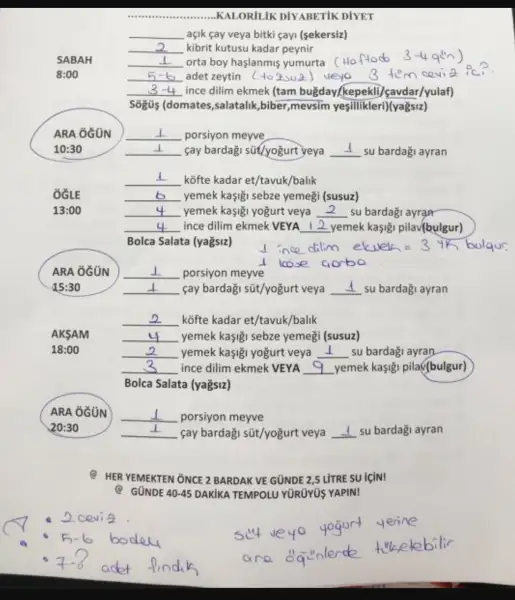 ....................KALORİLİK DİYABETİK DİYET
açık çay veya bitki çayı (şekersiz)
2 kibrit kutusu kadar peynir
SABAH 1 orta boy haşlanmış yumurta (Haftada 3-4 gün)
8:00 5-6 adet zeytin (tuzsuz) veya 3 tüm ceviz içi
3-4 ince dilim ekmek (tam buğday/kepekli/çavdar/yulaf)
Söğüş (domates,salatalık,biber,mevsim yeşillikleri)(yağsız)
ARA ÖĞÜN 1 porsiyon meyve
10:30 1 çay bardağı süt/yoğurt veya 1 su bardağı ayran
1 köfte kadar et/tavuk/balık
ÖĞLE 6 yemek kaşığı sebze yemeği (susuz)
13:00 4 yemek kaşığı yoğurt veya 2 su bardağı ayran
4 ince dilim ekmek VEYA 12 yemek kaşığı pilav(bulgur)
Bolca Salata (yağsız)
1 ince dilim ekmek = 3 YK bulgur
1 kase çorba
ARA ÖĞÜN 1 porsiyon meyve
15:30 1 çay bardağı süt/yoğurt veya 1 su bardağı ayran
2 köfte kadar et/tavuk/balık
AKŞAM 4 yemek kaşığı sebze yemeği (susuz)
18:00 2 yemek kaşığı yoğurt veya 1 su bardağı ayran
3 ince dilim ekmek VEYA 9 yemek kaşığı pilav(bulgur)
Bolca Salata (yağsız)
ARA ÖĞÜN 1 porsiyon meyve
20:30 1 çay bardağı süt/yoğurt veya 1 su bardağı ayran
@ HER YEMEKTEN ÖNCE 2 BARDAK VE GÜNDE 2,5 LİTRE SU İÇİN!
@ GÜNDE 40-45 DAKİKA TEMPOLU YÜRÜYÜŞ YAPIN!
• 2 ceviz
• 5-6 badem
• 7-8 adet fındık
süt veya yoğurt yerine
ara öğünlerde tüketebilir